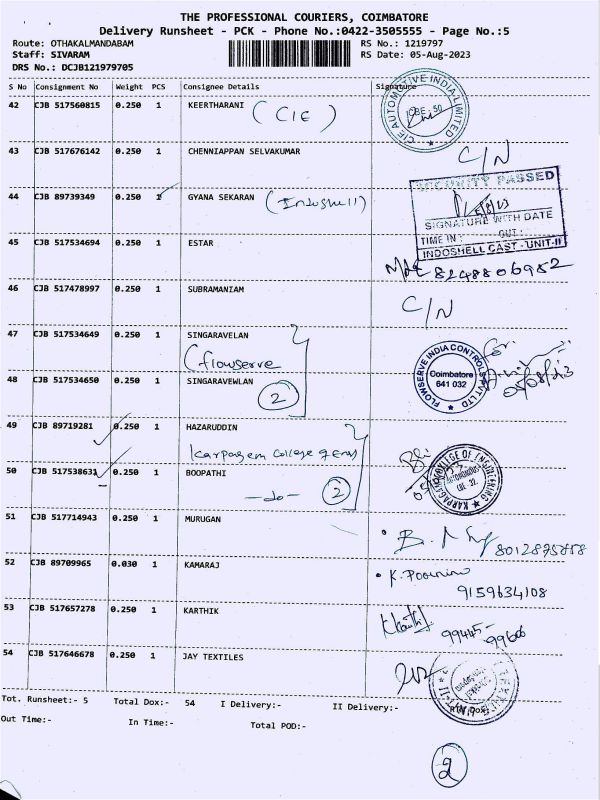 THE PROFESSIONAL COURIERS, COIMBATORE
Delivery Runsheet - PCK - Phone No.:0422-3505555 - Page No.:5
Route: OTHAKALMANDABAM RS No.: 1219797
Staff: SIVARAM RS Date: 05-Aug-2023
DRS No.: DCJB121979705
S No Consignment No Weight PCS Consignee Details Signature
42 CJB 517560815 0.250 1 KEERTHARANI (CIE)
CIE AUTOMOTIVE INDIA LIMITED CBE - 50
43 CJB 517676142 0.250 1 CHENNIAPPAN SELVAKUMAR C/N
44 CJB 89739349 0.250 1 GYANA SEKARAN (Indoshell)
SECURITY PASSED
SIGNATURE WITH DATE
TIME IN : OUT :
INDOSHELL CAST - UNIT-II
45 CJB 517534694 0.250 1 ESTAR 8248806952
46 CJB 517478997 0.250 1 SUBRAMANIAM C/N
47 CJB 517534649 0.250 1 SINGARAVELAN
(flowserve
FLOWSERVE INDIA CONTROLS PVT LTD Coimbatore 641 032
For
05/08/23
48 CJB 517534650 0.250 1 SINGARAVEWLAN 2
49 CJB 89719281 0.250 1 HAZARUDDIN
Karpagam college
KARPAGAM COLLEGE OF ENGINEERING AUTONOMOUS CBE - 32.
50 CJB 517538631 0.250 1 BOOPATHI
-do- 2
51 CJB 517714943 0.250 1 MURUGAN
8012875858
52 CJB 89709965 0.030 1 KAMARAJ K. Poornima
9159634108
53 CJB 517657278 0.250 1 KARTHIK
99445-
99606
54 CJB 517646678 0.250 1 JAY TEXTILES
Tot. Runsheet:- 5 Total Dox:- 54 I Delivery:- II Delivery:-
Out Time:- In Time:- Total POD:-
2